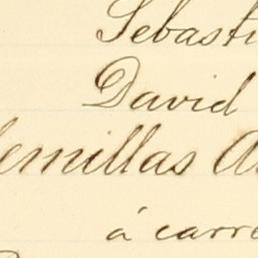 Sebasti
David
emillas A
á carre